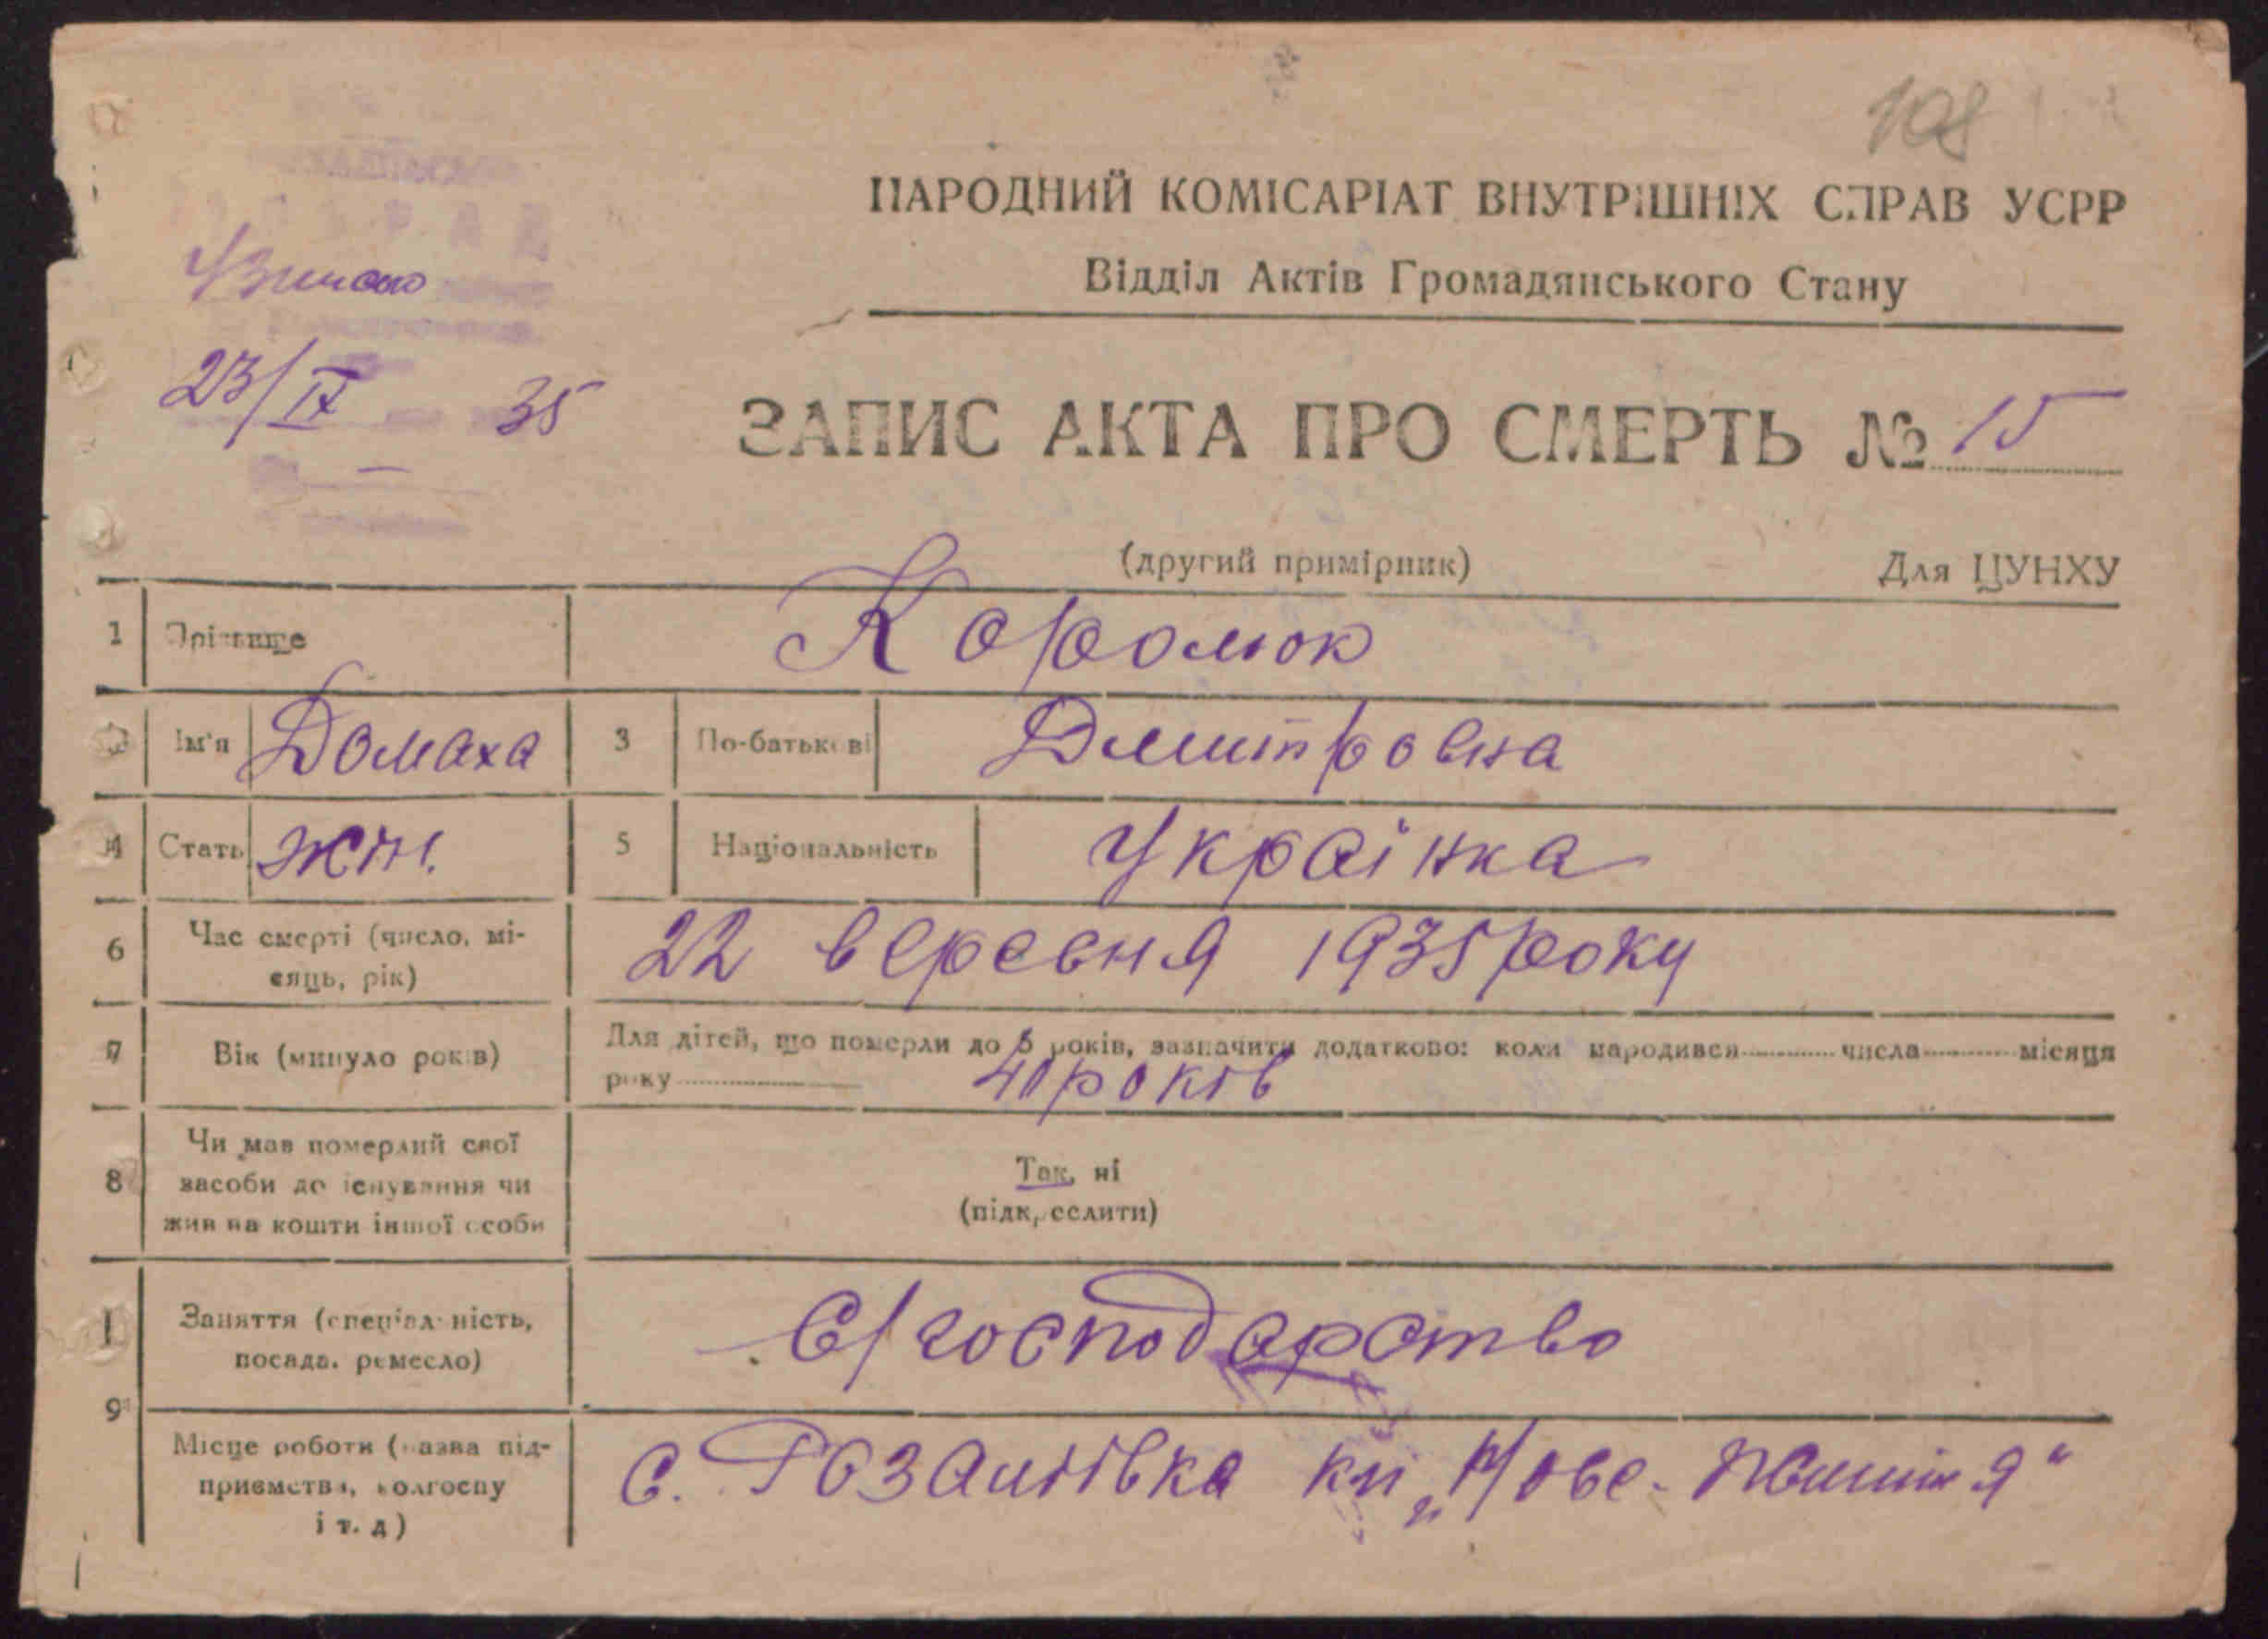 108
НАРОДНИЙ КОМІСАРІАТ ВНУТРІШНІХ СПРАВ УСРР
Відділ Актів Громадянського Стану
23/IX 35
ЗАПИС АКТА ПРО СМЕРТЬ № 15
(другий примірник) Для ЦУНХУ
1 Прізвище Королюк
Ім'я Домаха 3 По-батькові Дмитровна
4 Стать жін. 5 Національність Українка
6 Час смерті (число, мі-
сяць, рік) 22 вересня 1935 року
7 Вік (минуло років) Для дітей, що померли до 5 років, зазначити додатково: коли народився числа місяця
року 40 років
8 Чи мав померлий свої
засоби до існування чи
жив на кошти іншої особи
Так, ні
(підкреслити)
Заняття (спеціальність,
посада, ремесло) С/господарство
9 Місце роботи (назва під-
приємства, колгоспу
і т. д)
с. Розаліївка кл „Нове-Життя"